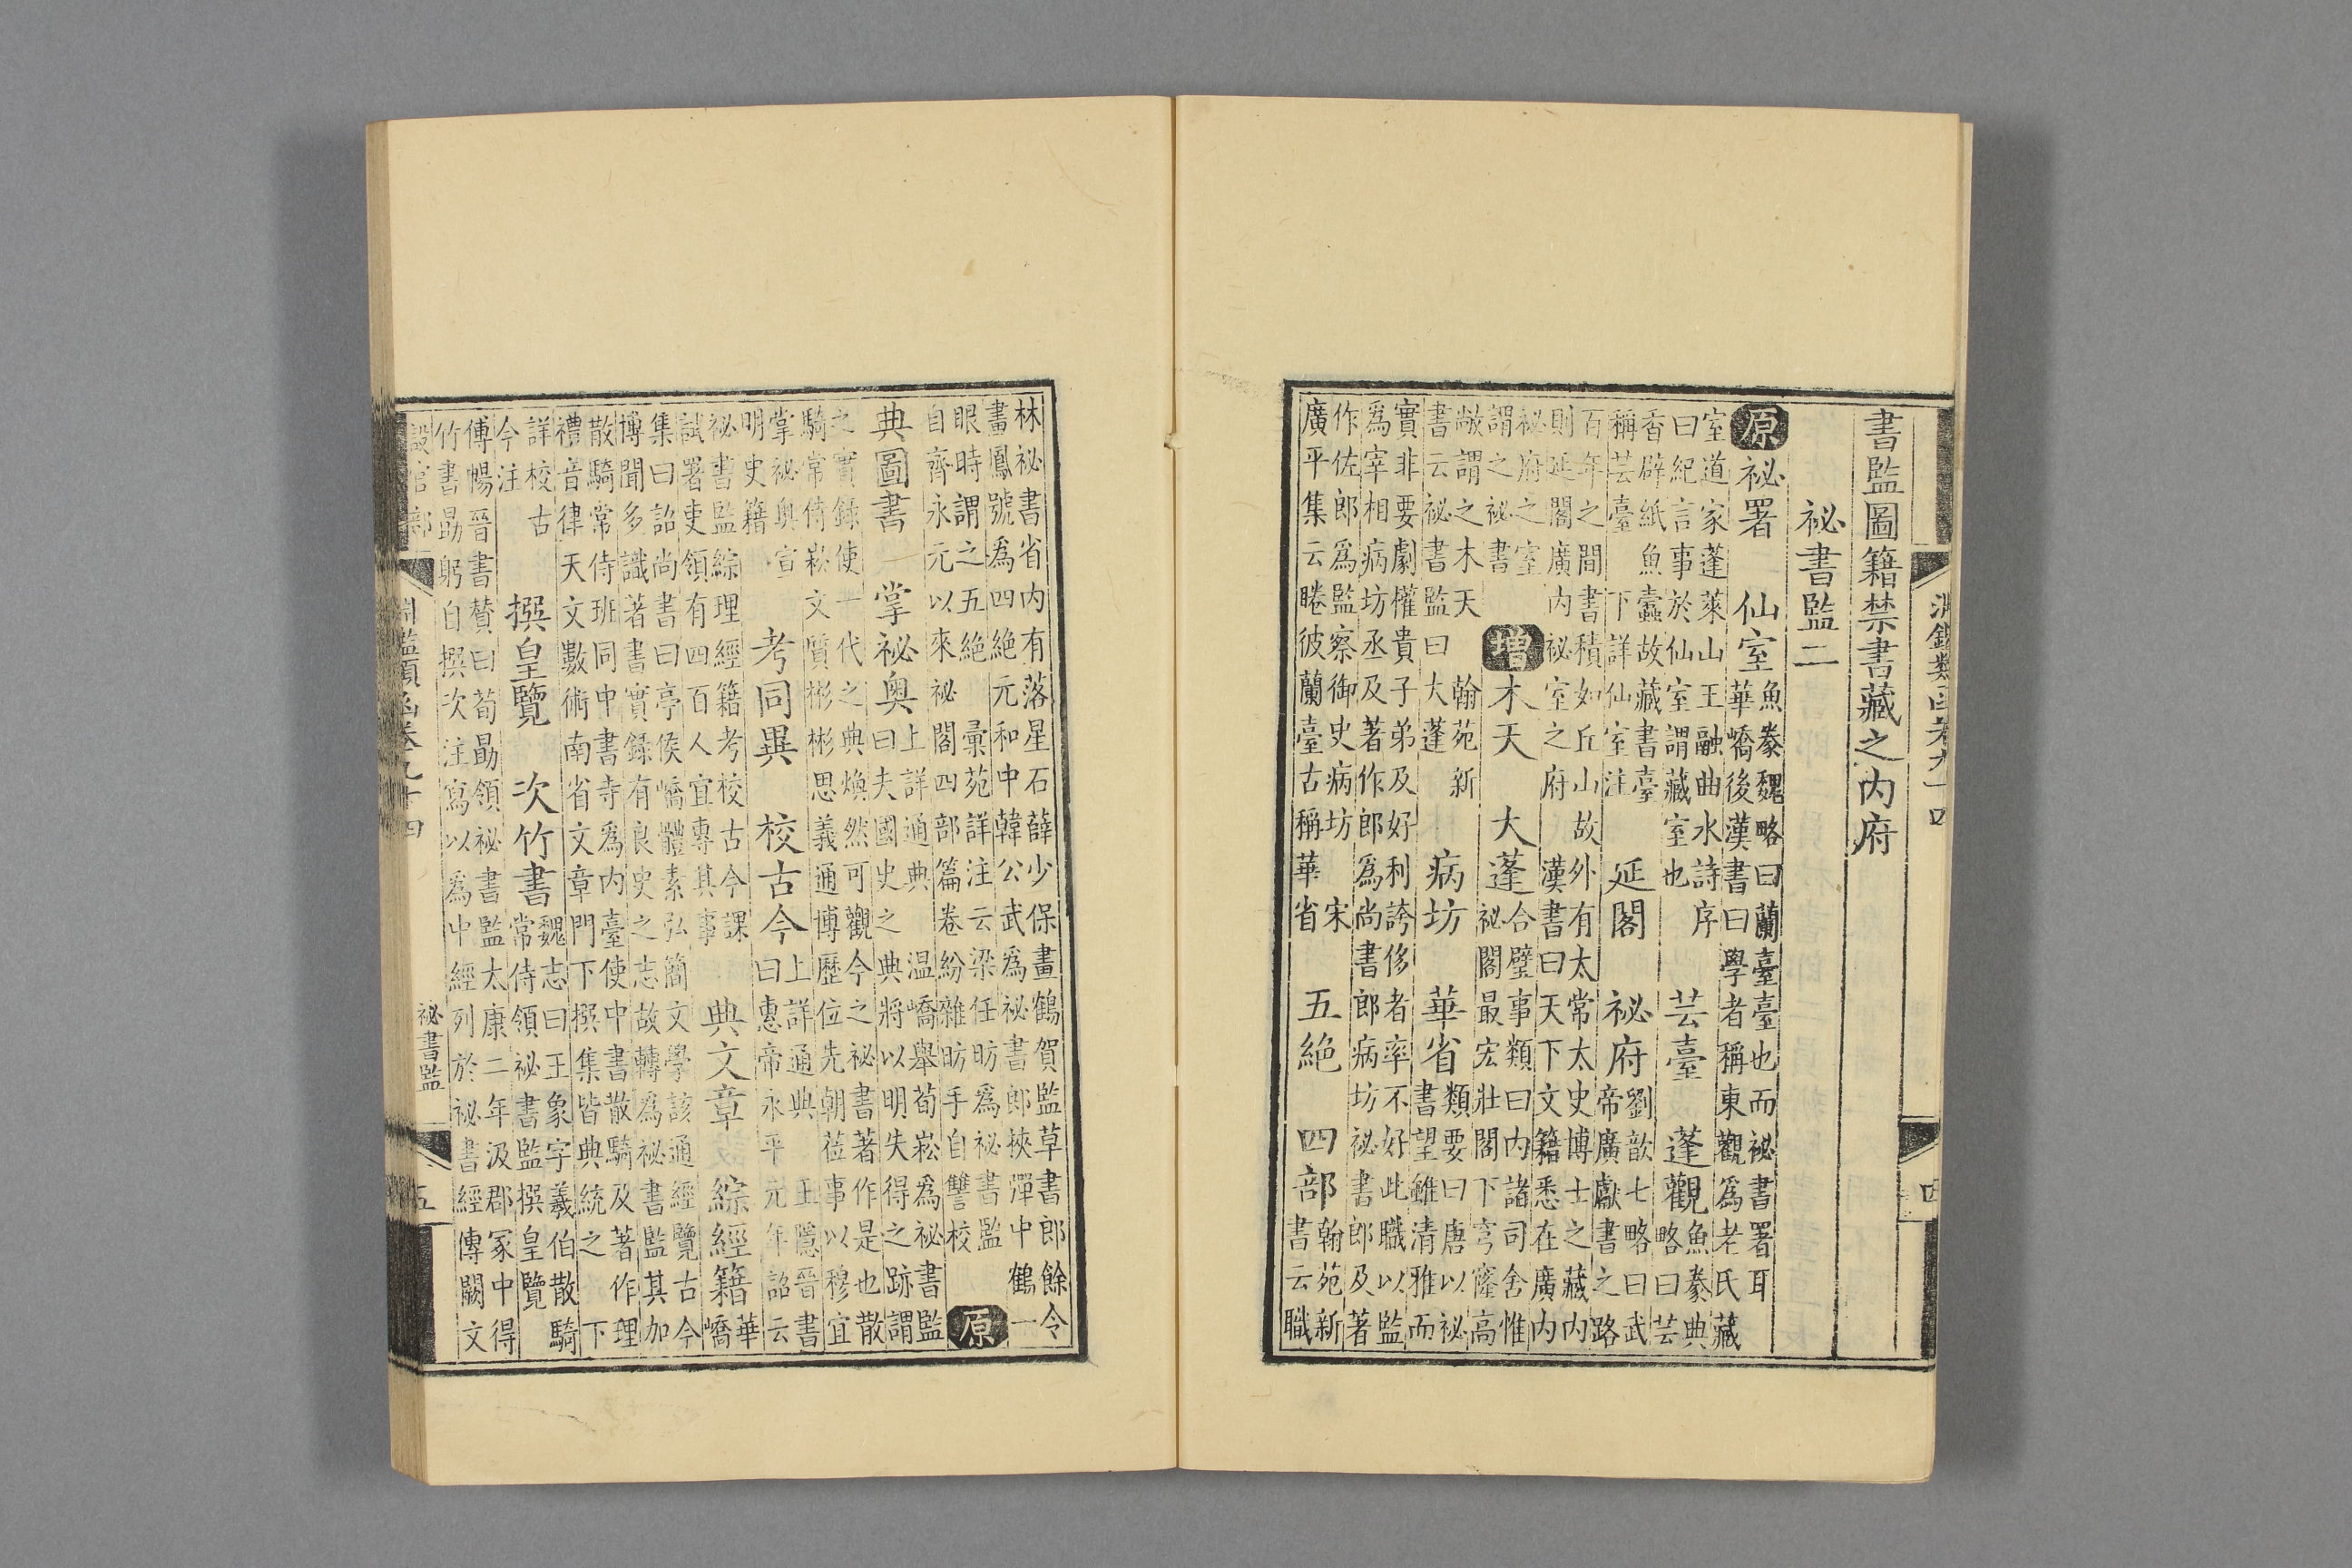 淵鑑類函卷九十四 四
書監圖籍禁書藏之内府
祕書監二
原 祕署 仙室 魚豢魏略曰蘭臺臺也而祕書署耳
華嶠後漢書曰學者稱東觀爲老氏藏
室道家蓬萊山王融曲水詩序
曰紀言事於仙室謂藏室也
芸臺 蓬觀 魚豢典
略曰芸
香辟紙魚蠹故藏書臺
稱芸臺下詳仙室注
延閣 祕府 劉歆七略曰武
帝廣獻書之路
百年之間書積如丘山故外有太常太史博士之藏内
則延閣廣内祕室之府 漢書曰天下文籍悉在廣内
祕府之室
謂之祕書
增 木天 大蓬 合璧事類曰内諸司舍惟
祕閣最宏壯閣下穹窿高
敞謂之木天 翰苑新
書云祕書監曰大蓬
病坊 華省 類要曰唐以祕
書望雖清雅而
實非要劇權貴子弟及好利誇侈者率不好此職以監
爲宰相病坊丞及著作郎爲尚書郎病坊祕書郎及著
作佐郎爲監察御史病坊 宋
廣平集云睠彼蘭臺古稱華省
五絶 四部 翰苑新
書云職
林祕書省内有落星石薛少保畫鶴賀監草書郎餘令
畫鳳號爲四絶元和中韓公武爲祕書郎挾彈中鶴一
眼時謂之五絶 彙苑詳注云梁任昉爲祕書監
自齊永元以來祕閣四部篇卷紛雜昉手自讐校
原
典圖書 掌祕奥 上詳通典 温嶠舉荀崧爲祕書監
曰夫國史之典將以明失得之跡謂
之實錄使一代之典煥然可觀今之祕書著作是也散
騎常侍崧文質彬彬思義通博歷位先朝莅事以穆宜
掌祕奥宣
明史籍
考同異 校古今 上詳通典 王隱晉書
曰惠帝永平元年詔云
祕書監綜理經籍考校古今課
試署吏領有四百人宜專其事
典文章 綜經籍 華
嶠
集曰詔尚書曰亭侯嶠體素弘簡文學該通經覽古今
博聞多識著書實錄有良史之志故轉爲祕書監其加
散騎常侍班同中書寺爲内臺使中書散騎及著作理
禮音律天文數術南省文章門下撰集皆典統之 下
詳校古
今注
撰皇覽 次竹書 魏志曰王象字羲伯散騎
常侍領祕書監撰皇覽
傅暢晉書贊曰荀勗領祕書監太康二年汲郡冢中得
竹書勗躬自撰次注寫以爲中經列於祕書經傳闕文
設官部 淵鑑類函卷九十四 祕書監 五